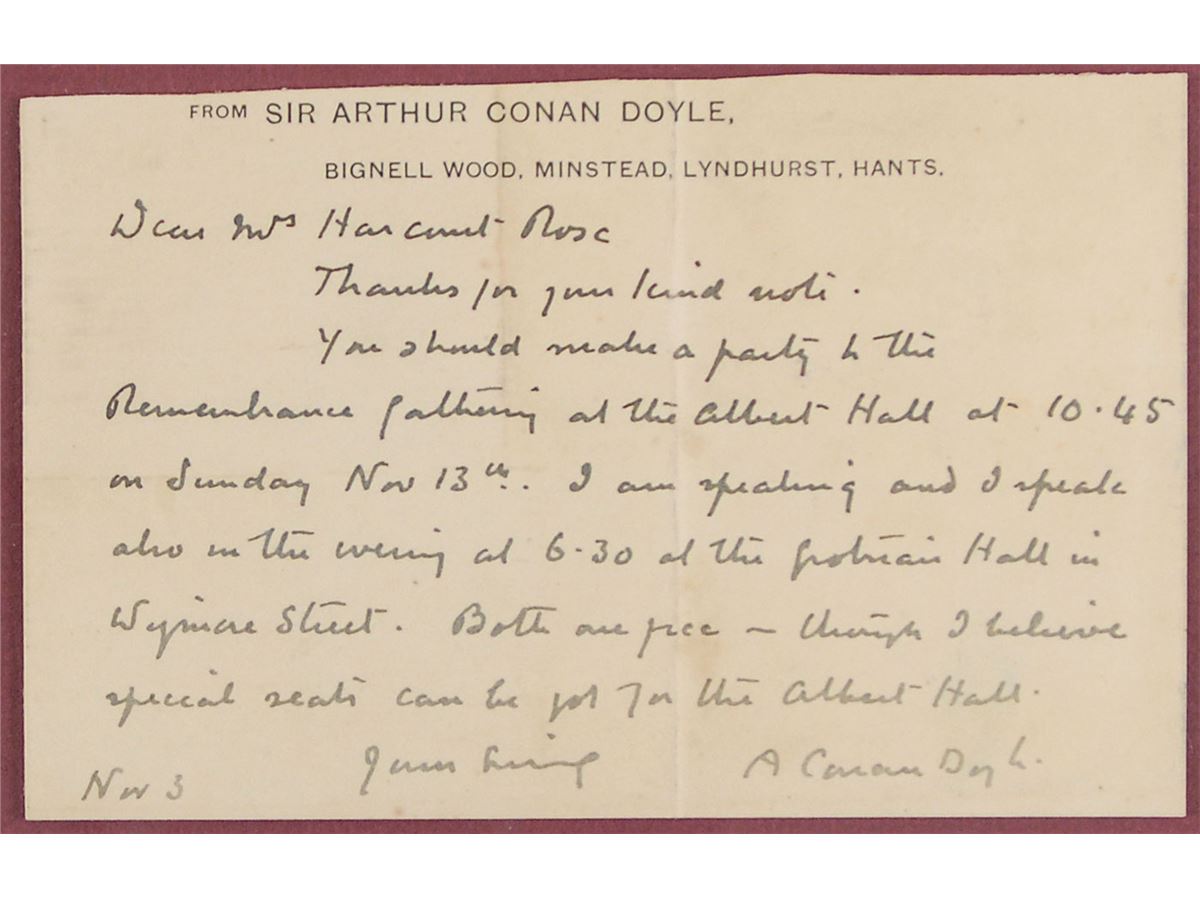 FROM SIR ARTHUR CONAN DOYLE,
BIGNELL WOOD, MINSTEAD, LYNDHURST, HANTS.
Dear Mrs Harcourt Rose
Thanks for your kind note.
You should make a party to the
Remembrance gathering at the Albert Hall at 10.45
on Sunday Nov 13th. I am speaking and I speak
also in the evening at 6.30 at the Grotrian Hall in
Wigmore Street. Both are free – though I believe
special seats can be got for the Albert Hall.
Yours
A Conan Doyle.
Nov 3